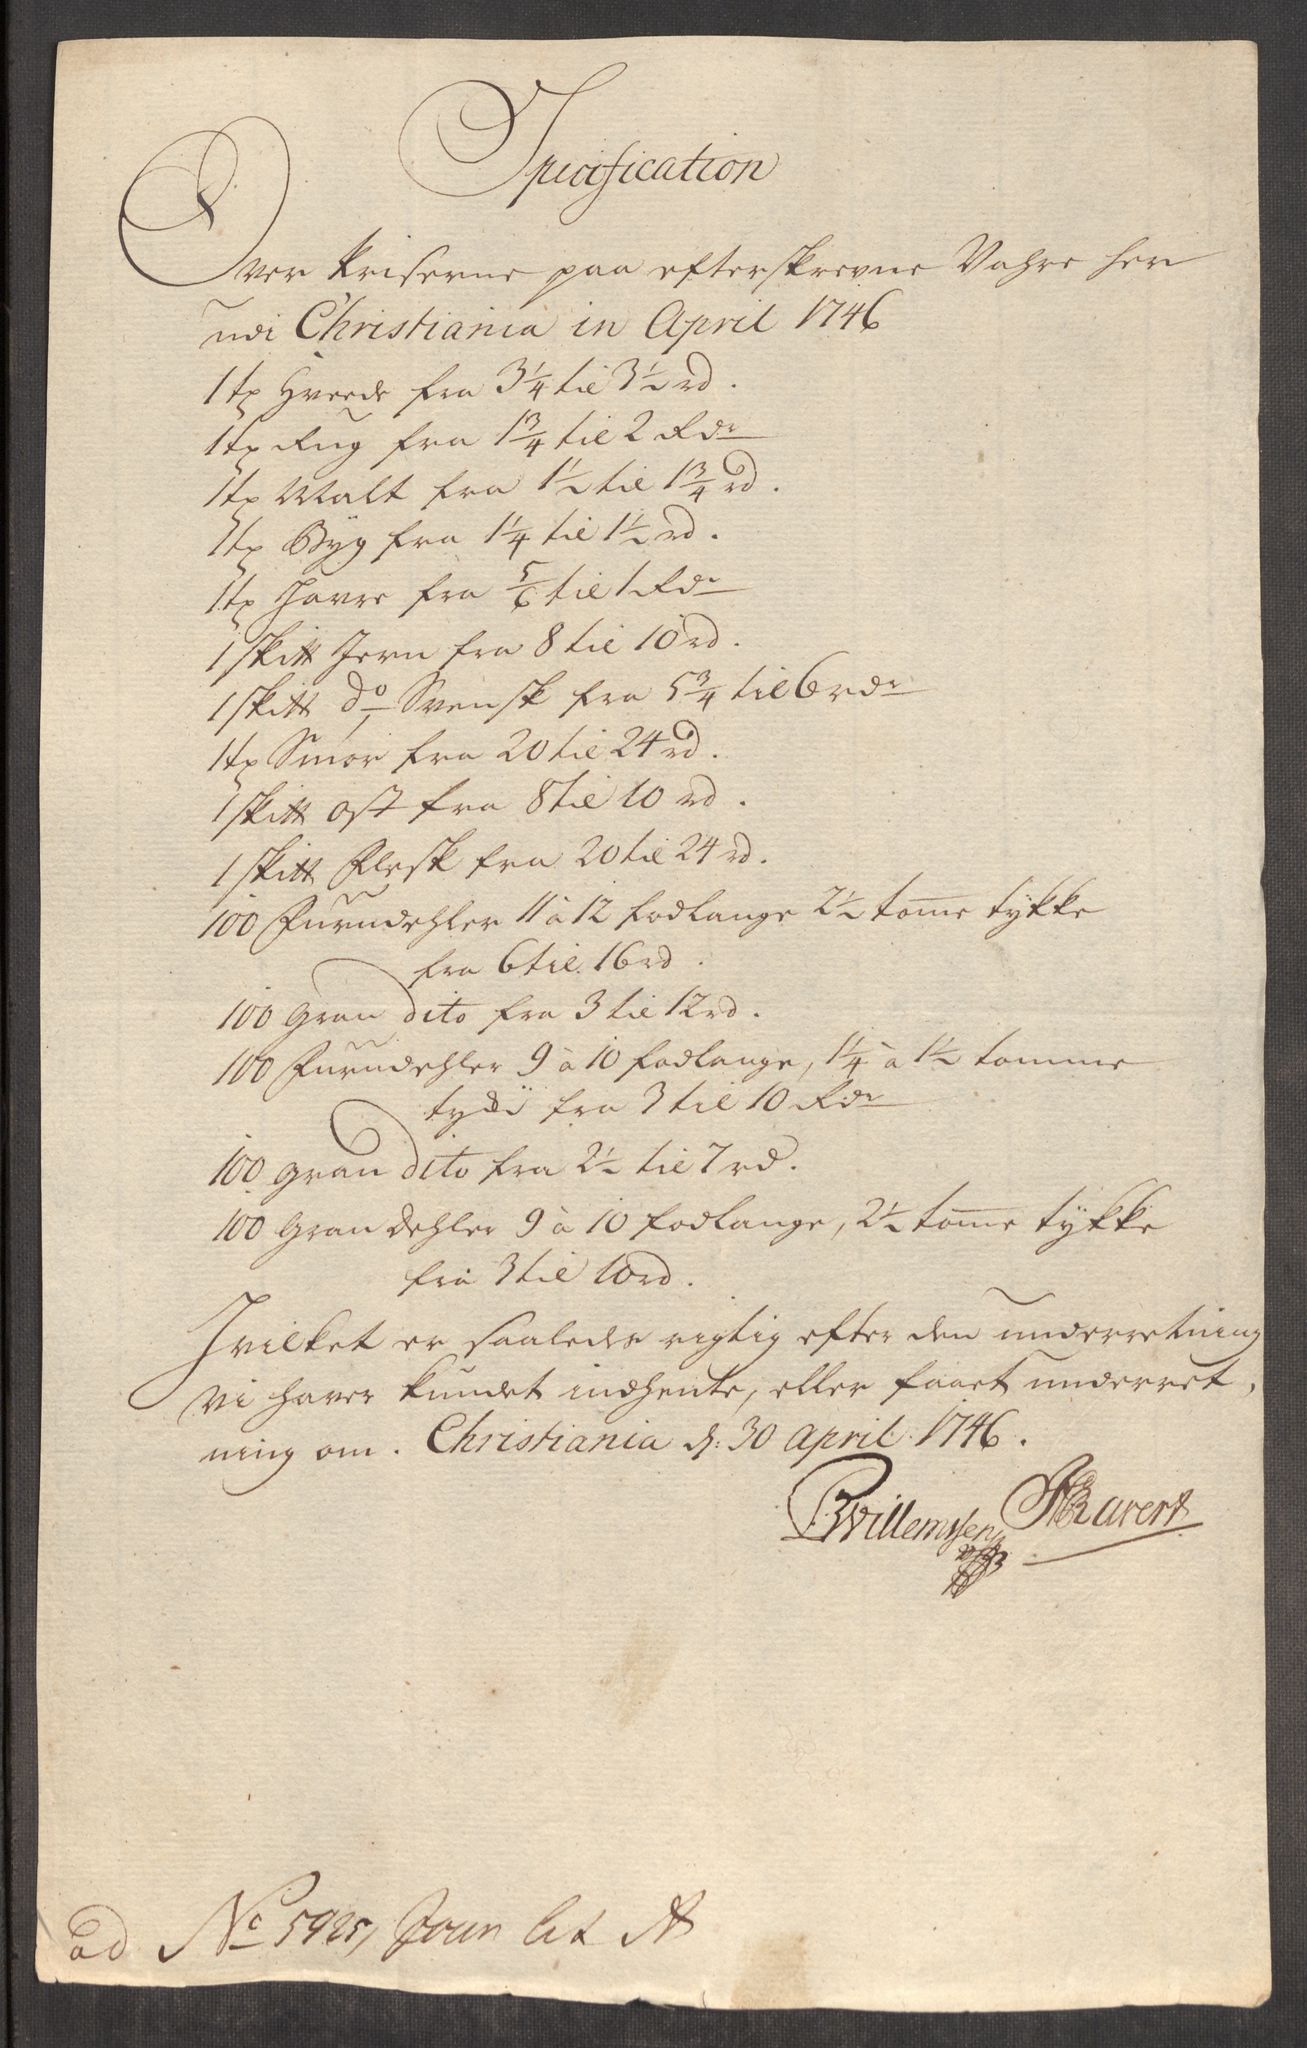 Specification
Over Priserne paa efterskrevne Vahre her
udi Christiania in April 1746
1 tø Hvede fra 3¼ til 3½ rd.
1 tø Rug fra 1¾ til 2 Rdr
1 tø Malt fra 1½ til 1¾ rd.
1 tø Byg fra 1¼ til 1½ rd.
1 tø Havre fra 5/6 til 1 Rdr
1 skitt Jern fra 8 til 10 rd.
1 skitt do Svensk fra 5¾ til 6 rdr
1 tø Smør fra 20 til 24 rd.
1 skitt ost fra 8 til 10 rd.
1 skitt Flesk fra 20 til 24 rd.
100 Furudehler 11 à 12 fodlange 2½ tome tykke
fra 6 til 16 rd.
100 Gran dito fra 3 til 12 rd.
100 Furudehler 9 à 10 fodlange, 1¼ à 1½ tomme
fra 3 til 10 Rdr
100 gran dito fra 2½ til 7 rd.
100 Gran dehler 9 à 10 fodlange, 2½ tome tykke
fra 3 til 10 rd.
Hvilket er saaledes rigtig efter den underretning
vi haver kundet indhente, eller faaet underret,
ning om. Christiania d: 30 April 1746.
Willemssen
ad No 5925, Jour lit A